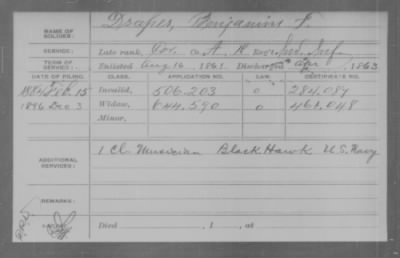 NAME OF SOLDIER: Draper, Benjamin F.
SERVICE: Late rank, Cor. Co. A, Reg't Ind. Inf.
TERM OF SERVICE: Enlisted Aug 16, 1861. Discharged Apr 1863
DATE OF FILING. CLASS. APPLICATION NO. LAW. CERTIFICATE NO.
1884 Feb 15 Invalid, 506.203 0 284.087
1896 Dec 3 Widow, 644.590 0 461.048
Minor,
ADDITIONAL SERVICES: 1 Cl. Musician Black Hawk U.S. Navy
REMARKS:
Died , 1 , at